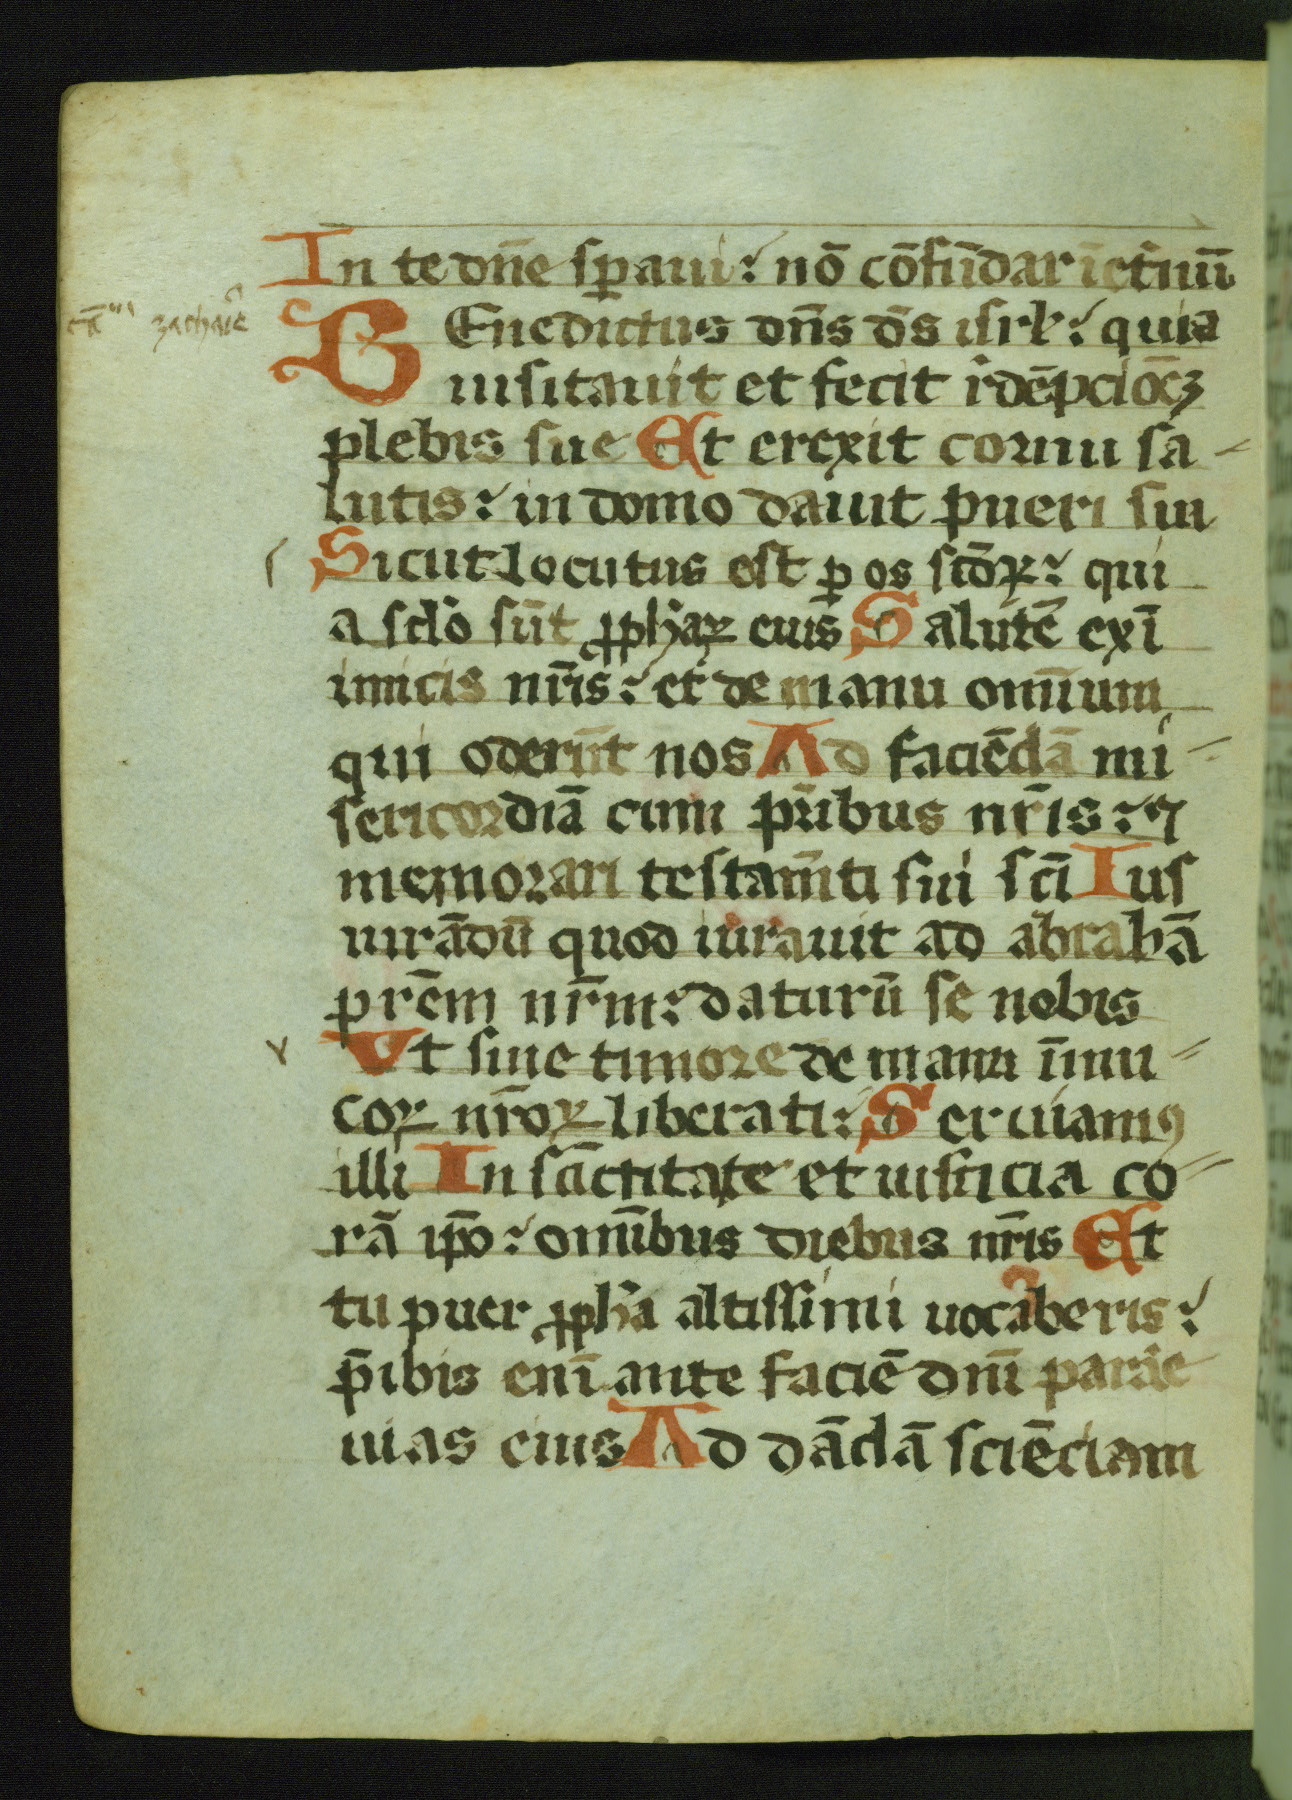 In te dn̄e sꝑaui: nō cōfūdar ī et̓nū
cā zacharie
BEnedictus dn̄s d̄s isrl̓: quia
uisitauit et fecit r̓dēpcioēꝫ
plebis sue Et erexit cornu sa
lutis: in domo dauit pueri sui
Sicut locutus est ꝑ os scōꝝ: qui
a sclo̓ sūt ꝓphaꝝ eius Salutē exī
imicis nr̄is: et de manu omīum
qui oderūt nos Ad faciēdā mi
sericordiā cum pr̄ibus nr̄is: ⁊
memorari testam̄ti sui sc̄i Ius
iurādū quod iurauit ad abrahā
pr̄em nr̄m: daturū se nobis
Ut sine timore de manu īimi
coꝝ nr̄oꝝ liberati: Seruiamꝯ
illi In sāctitate et iusticia co
rā ip̄o: omībus diebus nr̄is Et
tu puer ꝓpha altissimi uocaberis:
p̄ibis enī ante faciē dnī parar̓e
uias eius Ad dādā sciēciam